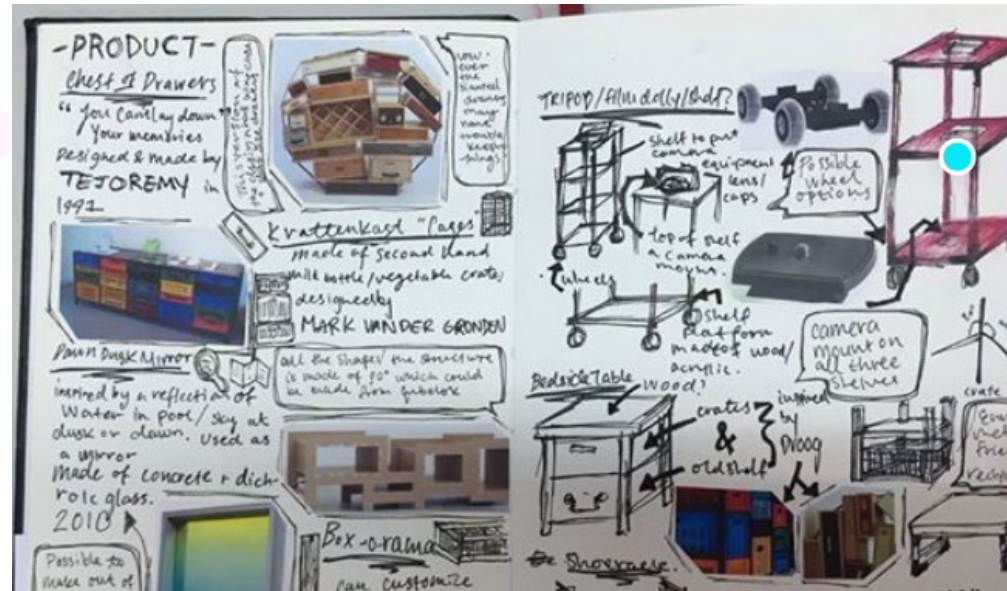 -PRODUCT-
Chest of Drawers
"You can't lay down
Your memories"
Designed & made by
TEJOREMY in
1991
how-
ever
the
slanted
drawers
may
have
trouble
keeping
things.
Krattenkast "Cases"
made of second hand
milk bottle/vegetable crates
designed by
MARK VANDER GRONDEN
Dawn Dusk Mirror
inspired by a reflection of
water in pool/sky at
dusk or dawn. used as
a mirror
Made of concrete + dich-
roic glass.
2010
all the shapes the structure
is made of 90° which could
be made from
Possible to
make out of
Box-o-rama
can customize
TRIPOD/film dolly/shelf?
shelf to put
camera
equipment
lens/
caps
top of shelf
a camera
mount.
wheels
Possible
wheel
options
shelf
platform
made of wood/
acrylic.
camera
mount on
all three
shelves
Bedside Table
wood?
crates
&
old shelf
inspired
by
Droog
crates
Shoerack.